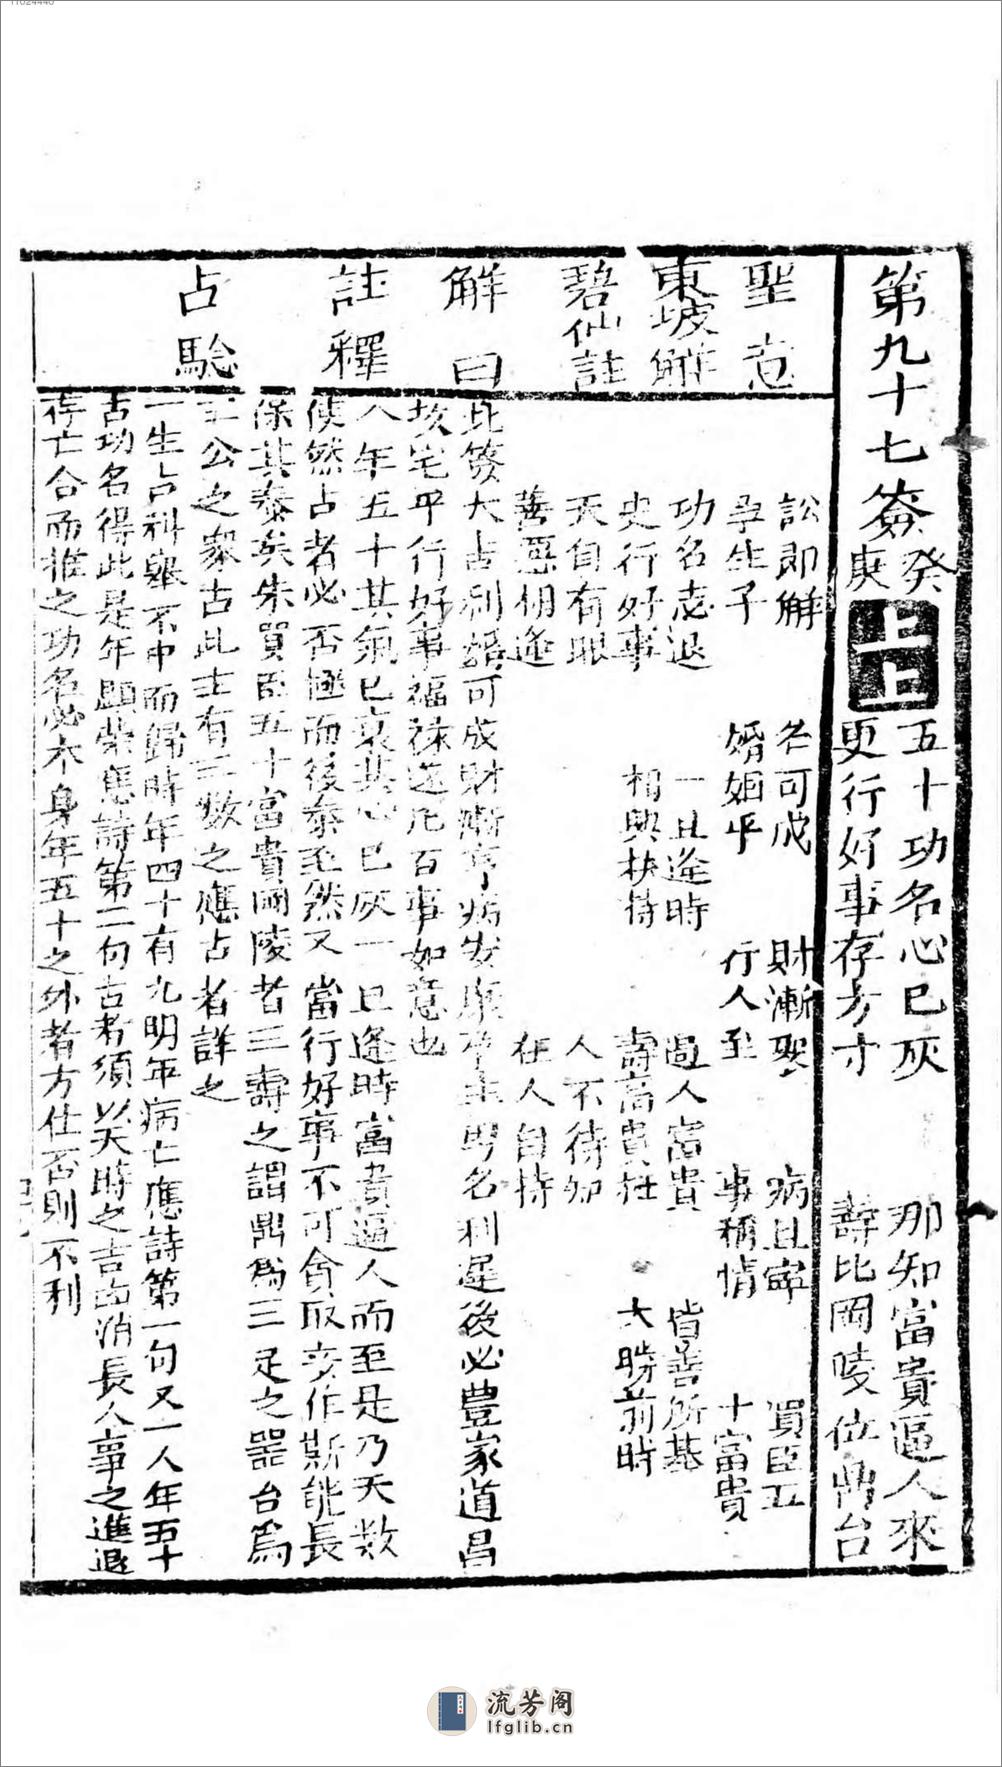 第九十七簽 癸庚 上上
五十功名心已灰 那知富貴逼人來
更行好事存方寸 壽比岡陵位鼎台
聖意
訟即解 名可成 財漸聚 病且寧 買臣五
孕生子 婚姻平 行人至 事稱情 十富貴
東坡解
功名志退 一旦逢時 逼人富貴 皆善所基
史行好事 相與扶持 壽高貴在 大勝前時
碧仙註
天自有眼 人不待知
善惡相逢 在人自持
解曰
此簽大占利婚可成財漸亨病安康孕主男名利遲後必豊家道昌
坟宅平行好事福祿迭凡百事如意也
註釋
人年五十其氣已衰其心已灰一旦逢時富貴逼人而至是乃天数
使然占者必否極而後泰至然又當行好事不可貪取妄作斯能長
保其泰矣朱買臣五十富貴岡陵者三壽之謂鼎爲三足之噐台爲
三公之象占此士有三数之應占者詳之
占驗
一生占科舉不中而歸時年四十有九明年病亡應詩第一句又一人年五十
占功名得此是年顕榮應詩第二句占者須以天時之吉凶消長人事之進退
存亡合而推之功名必本身年五十之外者方仕否則不利
流芳阁
lfglib.cn